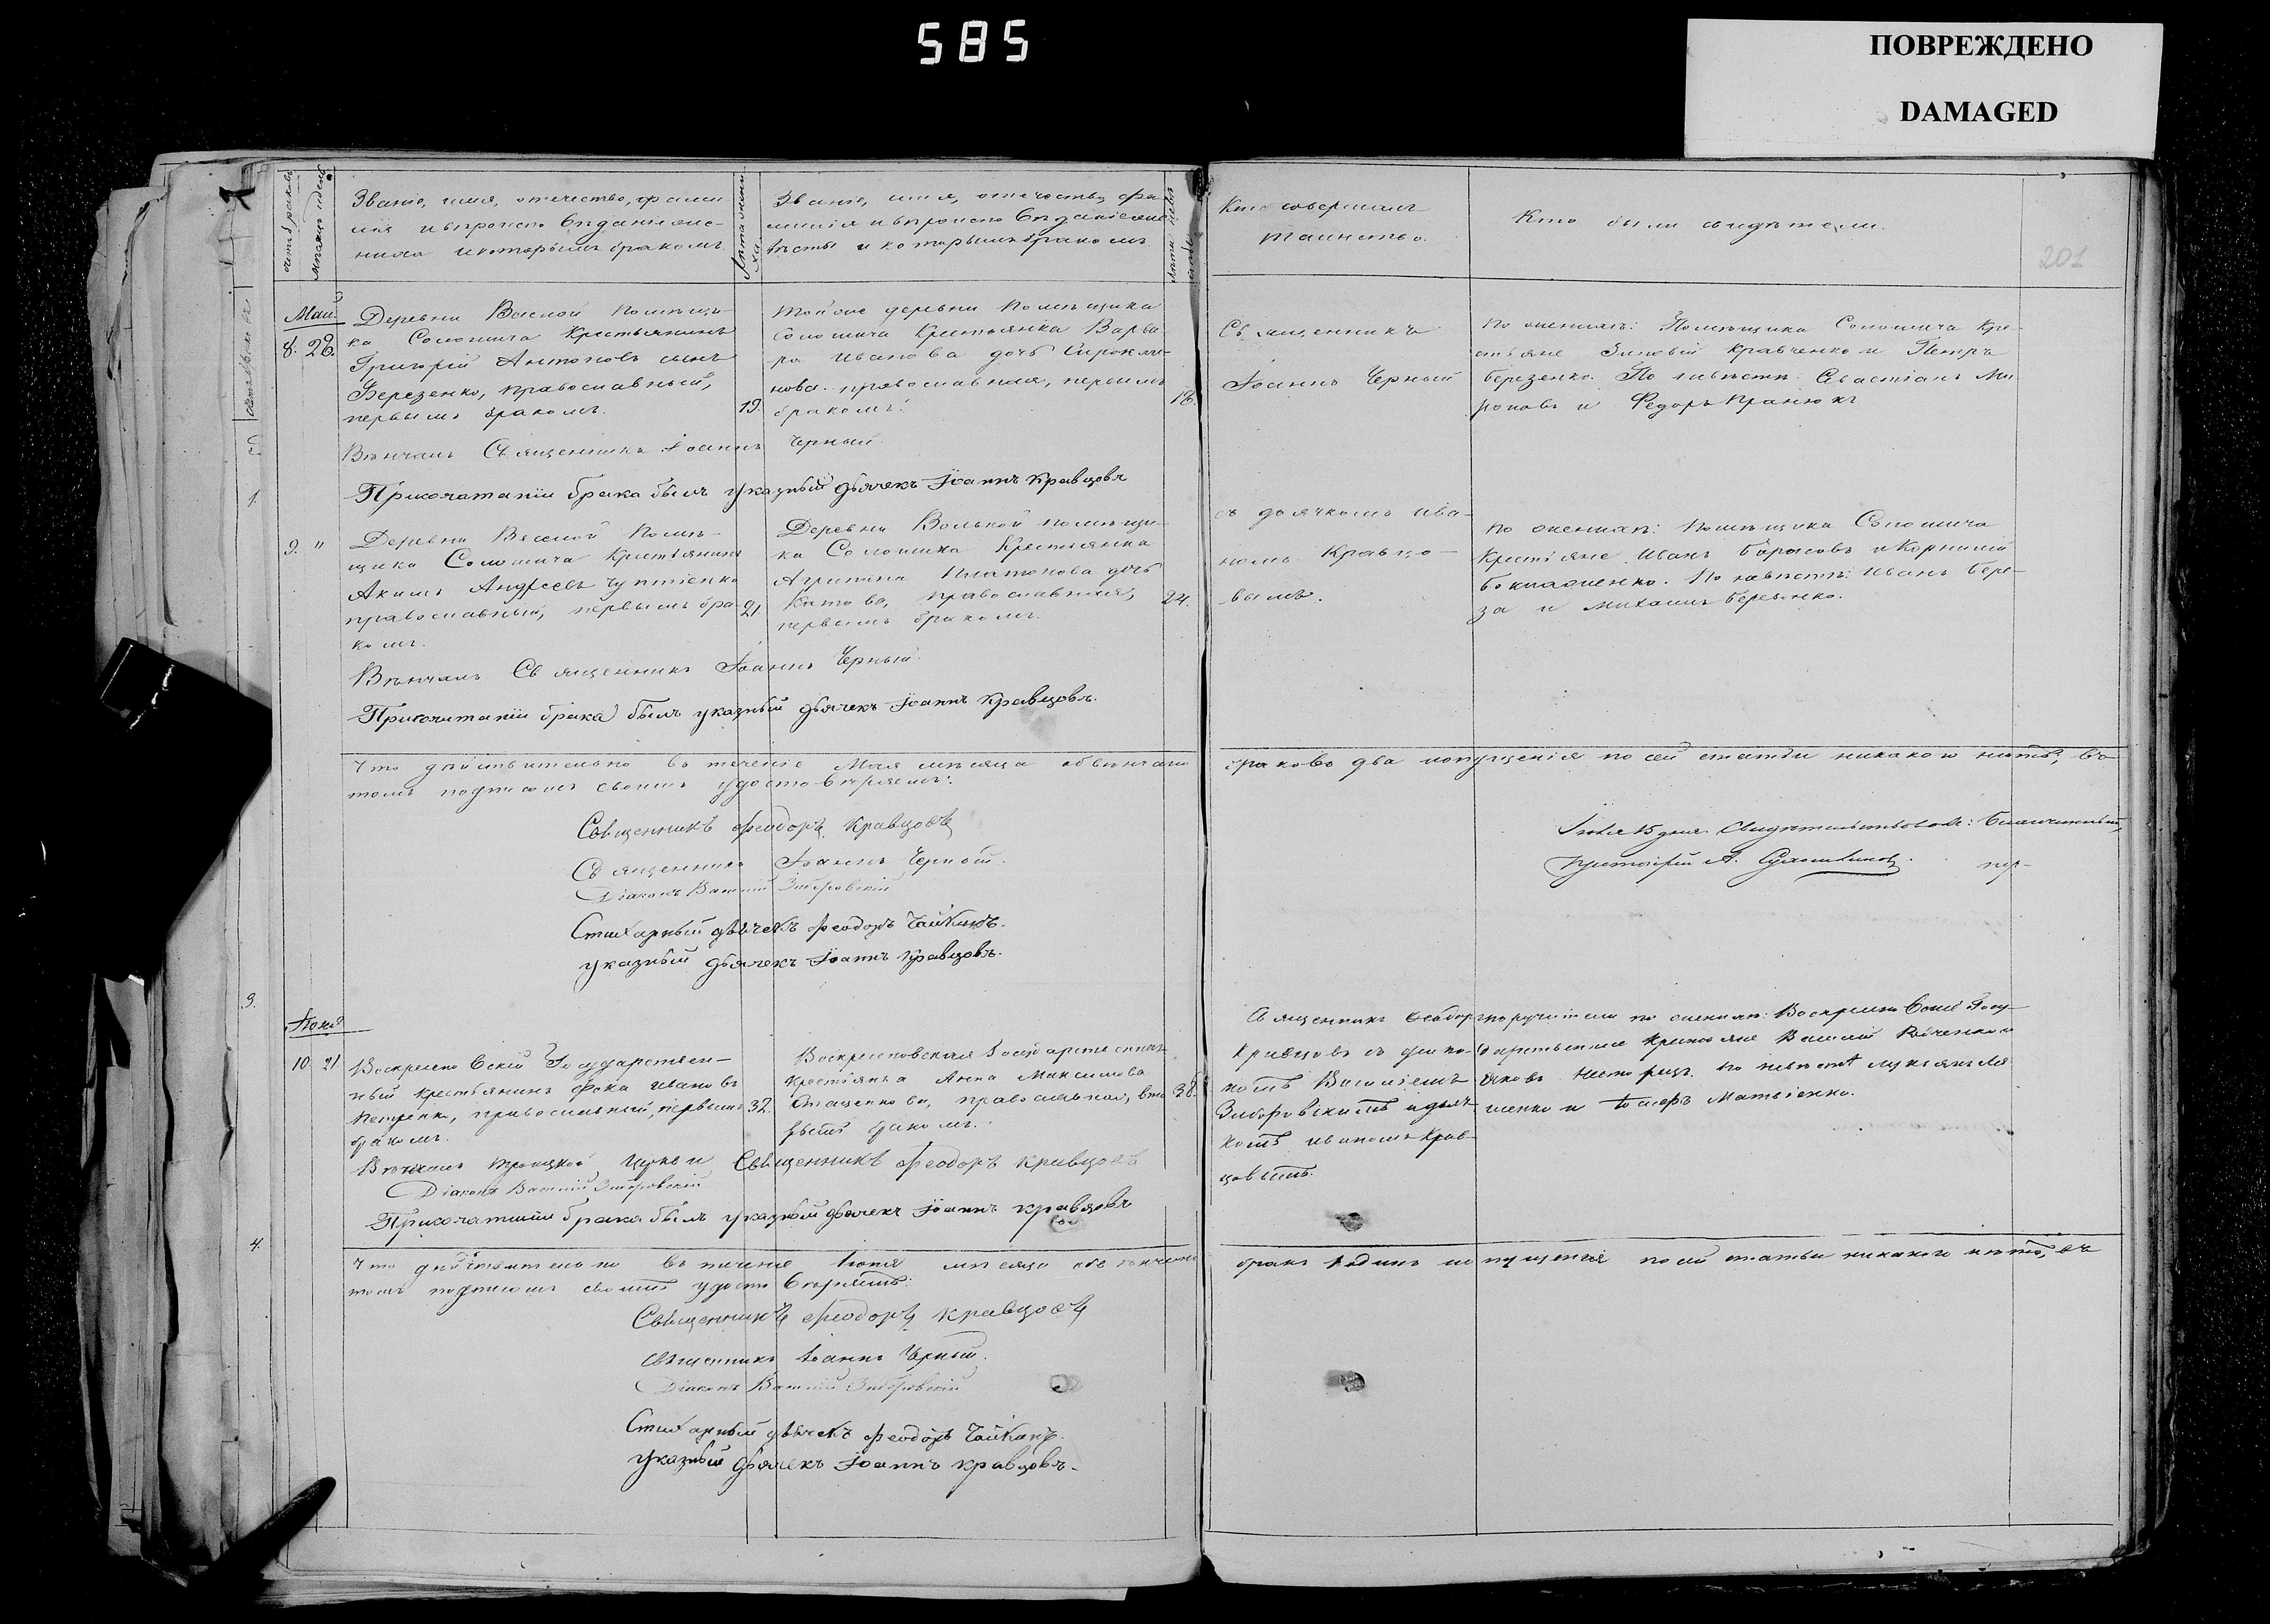 585
ПОВРЕЖДЕНО
DAMAGED
201
Счетъ браковъ
Мѣсяцъ и день
Званіе, имя, отчество, фами-
лія и вѣроисповѣданіе же-
ниха и которымъ бракомъ.
Лѣта жени-
ха.
Званіе, имя, отчество, фа-
милія и вѣроисповѣданіе не-
вѣсты и которымъ бракомъ
Лѣта невѣ-
сты
Кто совершалъ
таинство.
Кто были свидѣтели.
Май
8. 28.
Деревни Веселой Помѣщи-
ка Соломича Крестьянинъ
Григорій Антоновъ сынъ
Березенко, православный,
первымъ бракомъ.
19.
Той же деревни Помѣщика
Соломича Крестьянка Варва-
ра Иванова дочь
нова. православная, первымъ
бракомъ.
18.
Священникъ
Іоаннъ Черный
По женихѣ: Помѣщика Соломича Кре-
стьяне Зиновій Кравченко и Петръ
Березенко. По невѣстѣ: Севастіанъ Ми-
роновъ и Федоръ
Вѣнчалъ Священникъ Іоаннъ Черный
При сочетаніи брака былъ указный дьячекъ Іоаннъ Кравцовъ
9. "
Деревни Веселой Помѣ-
щика Соломича Крестьянинъ
Акимъ Андреевъ
православный, первымъ бра-
комъ.
21
Деревни Вольной помѣщи-
ка Соломича Крестьянка
Агрипина Платонова дочь
Катова, православная,
первымъ бракомъ.
24.
съ дьячкомъ Ива-
номъ Кравцо-
вымъ.
По женихѣ: Помѣщика Соломича
Крестьяне Иванъ Борисовъ и Корнилій
По невѣстѣ: Иванъ Бере-
за и Михаилъ Березенко.
Вѣнчалъ Священникъ Іоаннъ Черный.
При сочетаніи брака былъ указный дьячекъ Іоаннъ Кравцовъ.
Что дѣйствительно въ теченіе Мая мѣсяца обвѣнчано браковъ два и опущенія по сей статьи никакого нѣтъ, въ
томъ подписомъ своимъ удостовѣряемъ:
Священникъ Феодоръ Кравцовъ
Священникъ Іоаннъ Черный.
Діаконъ Василій Зиборовскій
Стихарный дьячекъ Феодоръ Чайкинъ.
указный дьячекъ Іоаннъ Кравцовъ.
15 дня. Свидѣтельствовалъ: Благочинный,
Протоіерей А.
Іюня
10. 21.
Воскресеновскій Государствен-
ный крестьянинъ Фока Ивановъ
Петренко, православный, первымъ
бракомъ.
32.
Воскресеновская Государственная
крестьянка Анна Максимова
православная, вто-
рымъ бракомъ.
38.
Священникъ Феодоръ
Кравцовъ съ діако-
номъ Василіемъ
Зиборовскимъ и дьяч-
комъ Иваномъ Крав-
цовымъ.
поручители по женихѣ: Воскресеновскіе Госу-
дарственные Крестьяне Василій
Яковъ По невѣстѣ
и Матвіенко.
Вѣнчалъ Троицкой Церкви Священникъ Феодоръ Кравцовъ
Діаконъ Василій Зиборовскій
При сочетаніи брака былъ указный дьячекъ Іоаннъ Кравцовъ
Что дѣйствительно въ теченіе Іюня мѣсяца обвѣнчанъ бракъ одинъ и опущенія по сей статьи никакого нѣтъ, въ
томъ подписомъ своимъ удостовѣряемъ:
Священникъ Феодоръ Кравцовъ
Священникъ Іоаннъ Черный.
Діаконъ Василій Зиборовскій
Стихарный дьячекъ Феодоръ Чайкинъ.
указный дьячекъ Іоаннъ Кравцовъ.
1.
3.
4.